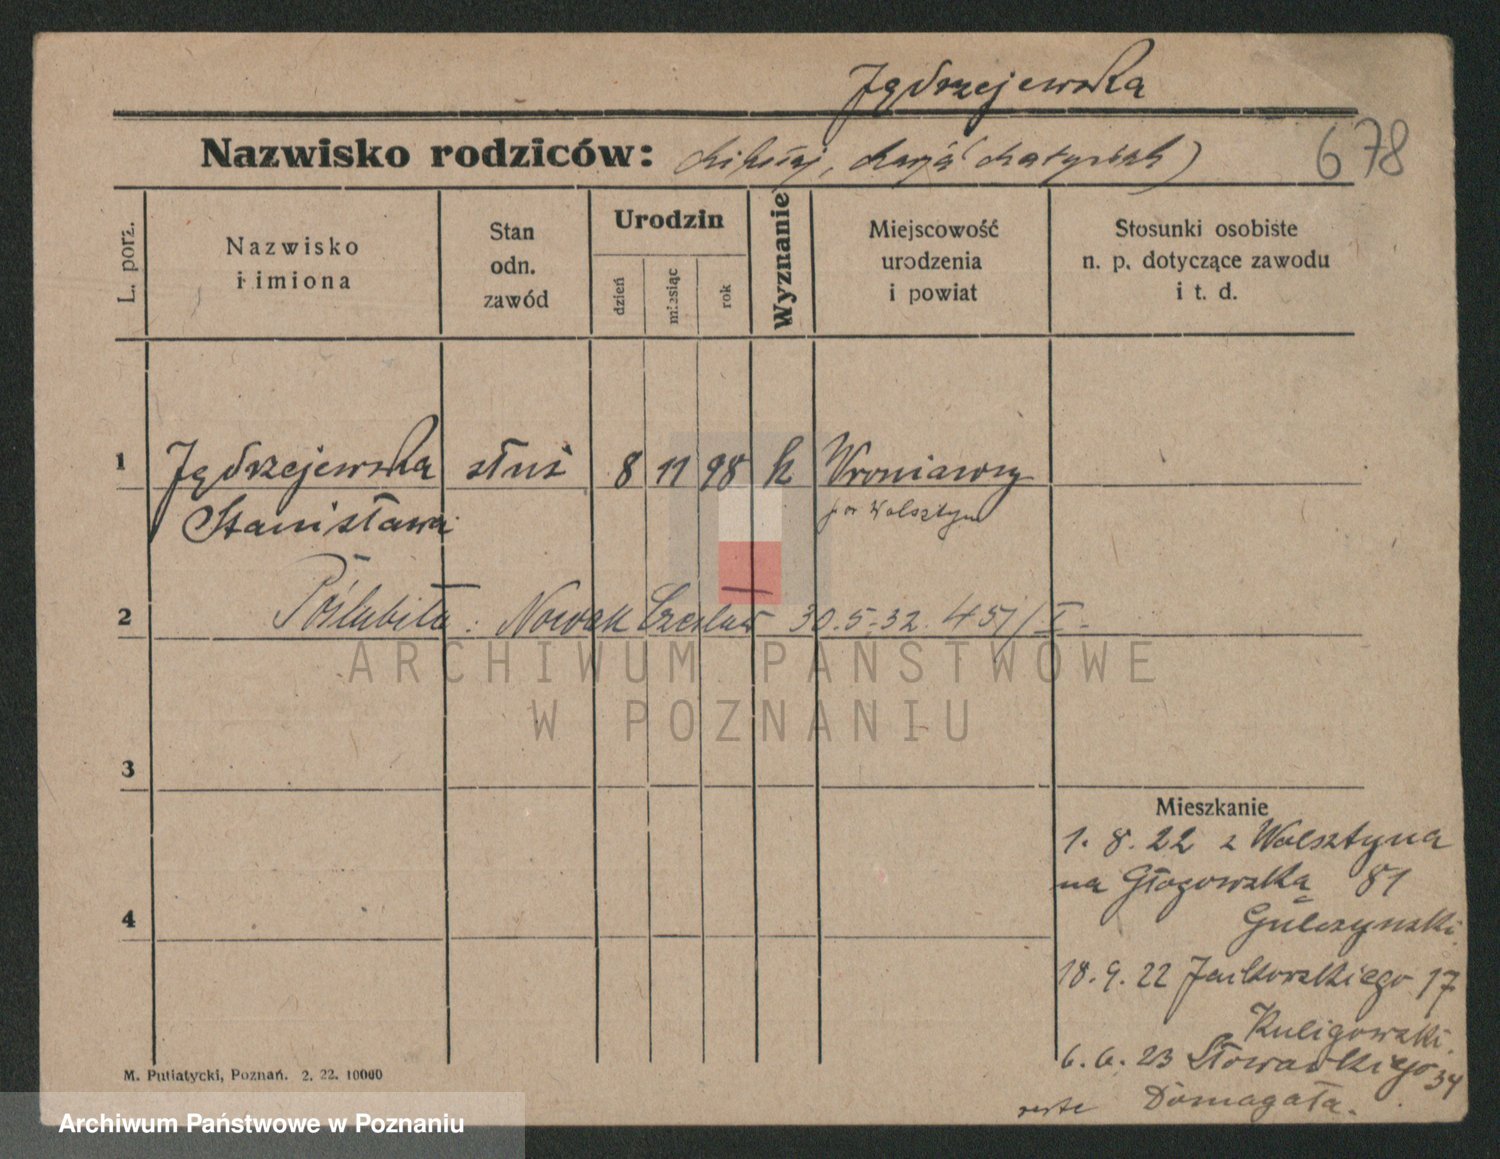 Jędrzejewska
Nazwisko rodziców: Mikołaj, Marja (Matysiak)
678
L. porz.
Nazwisko
i imiona
Stan
odn.
zawód
Urodzin
dzień
miesiąc
rok
Wyznanie
Miejscowość
urodzenia
i powiat
Stosunki osobiste
n. p. dotyczące zawodu
i t. d.
1 Jędrzejewska służ 8 11 98 k Wroniawy
Stanisława pow Wolsztyn
2 Poślubiła: Nowak Czesław 30.5.32. 451/I.
ARCHIWUM PAŃSTWOWE
W POZNANIU
3
Mieszkanie
1. 8. 22 z Wolsztyna
na Głogowską 81
4
Gulczynski.
18. 9. 22 Jackowskiego 17
Kuligowski.
6. 6. 23 Słowackiego 34
Domagała.
M. Putiatycki, Poznań. 2. 22. 10000
Archiwum Państwowe w Poznaniu